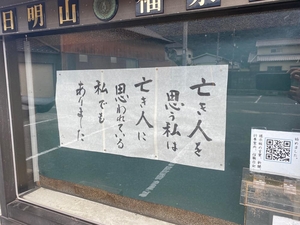 日明山
福
亡き人を
思う私は
亡き人に
思われている
私でも
ありました